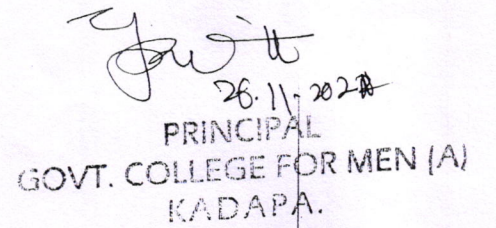 26.11.202
PRINCIPAL
GOVT. COLLEGE FOR MEN (A)
KADAPA.